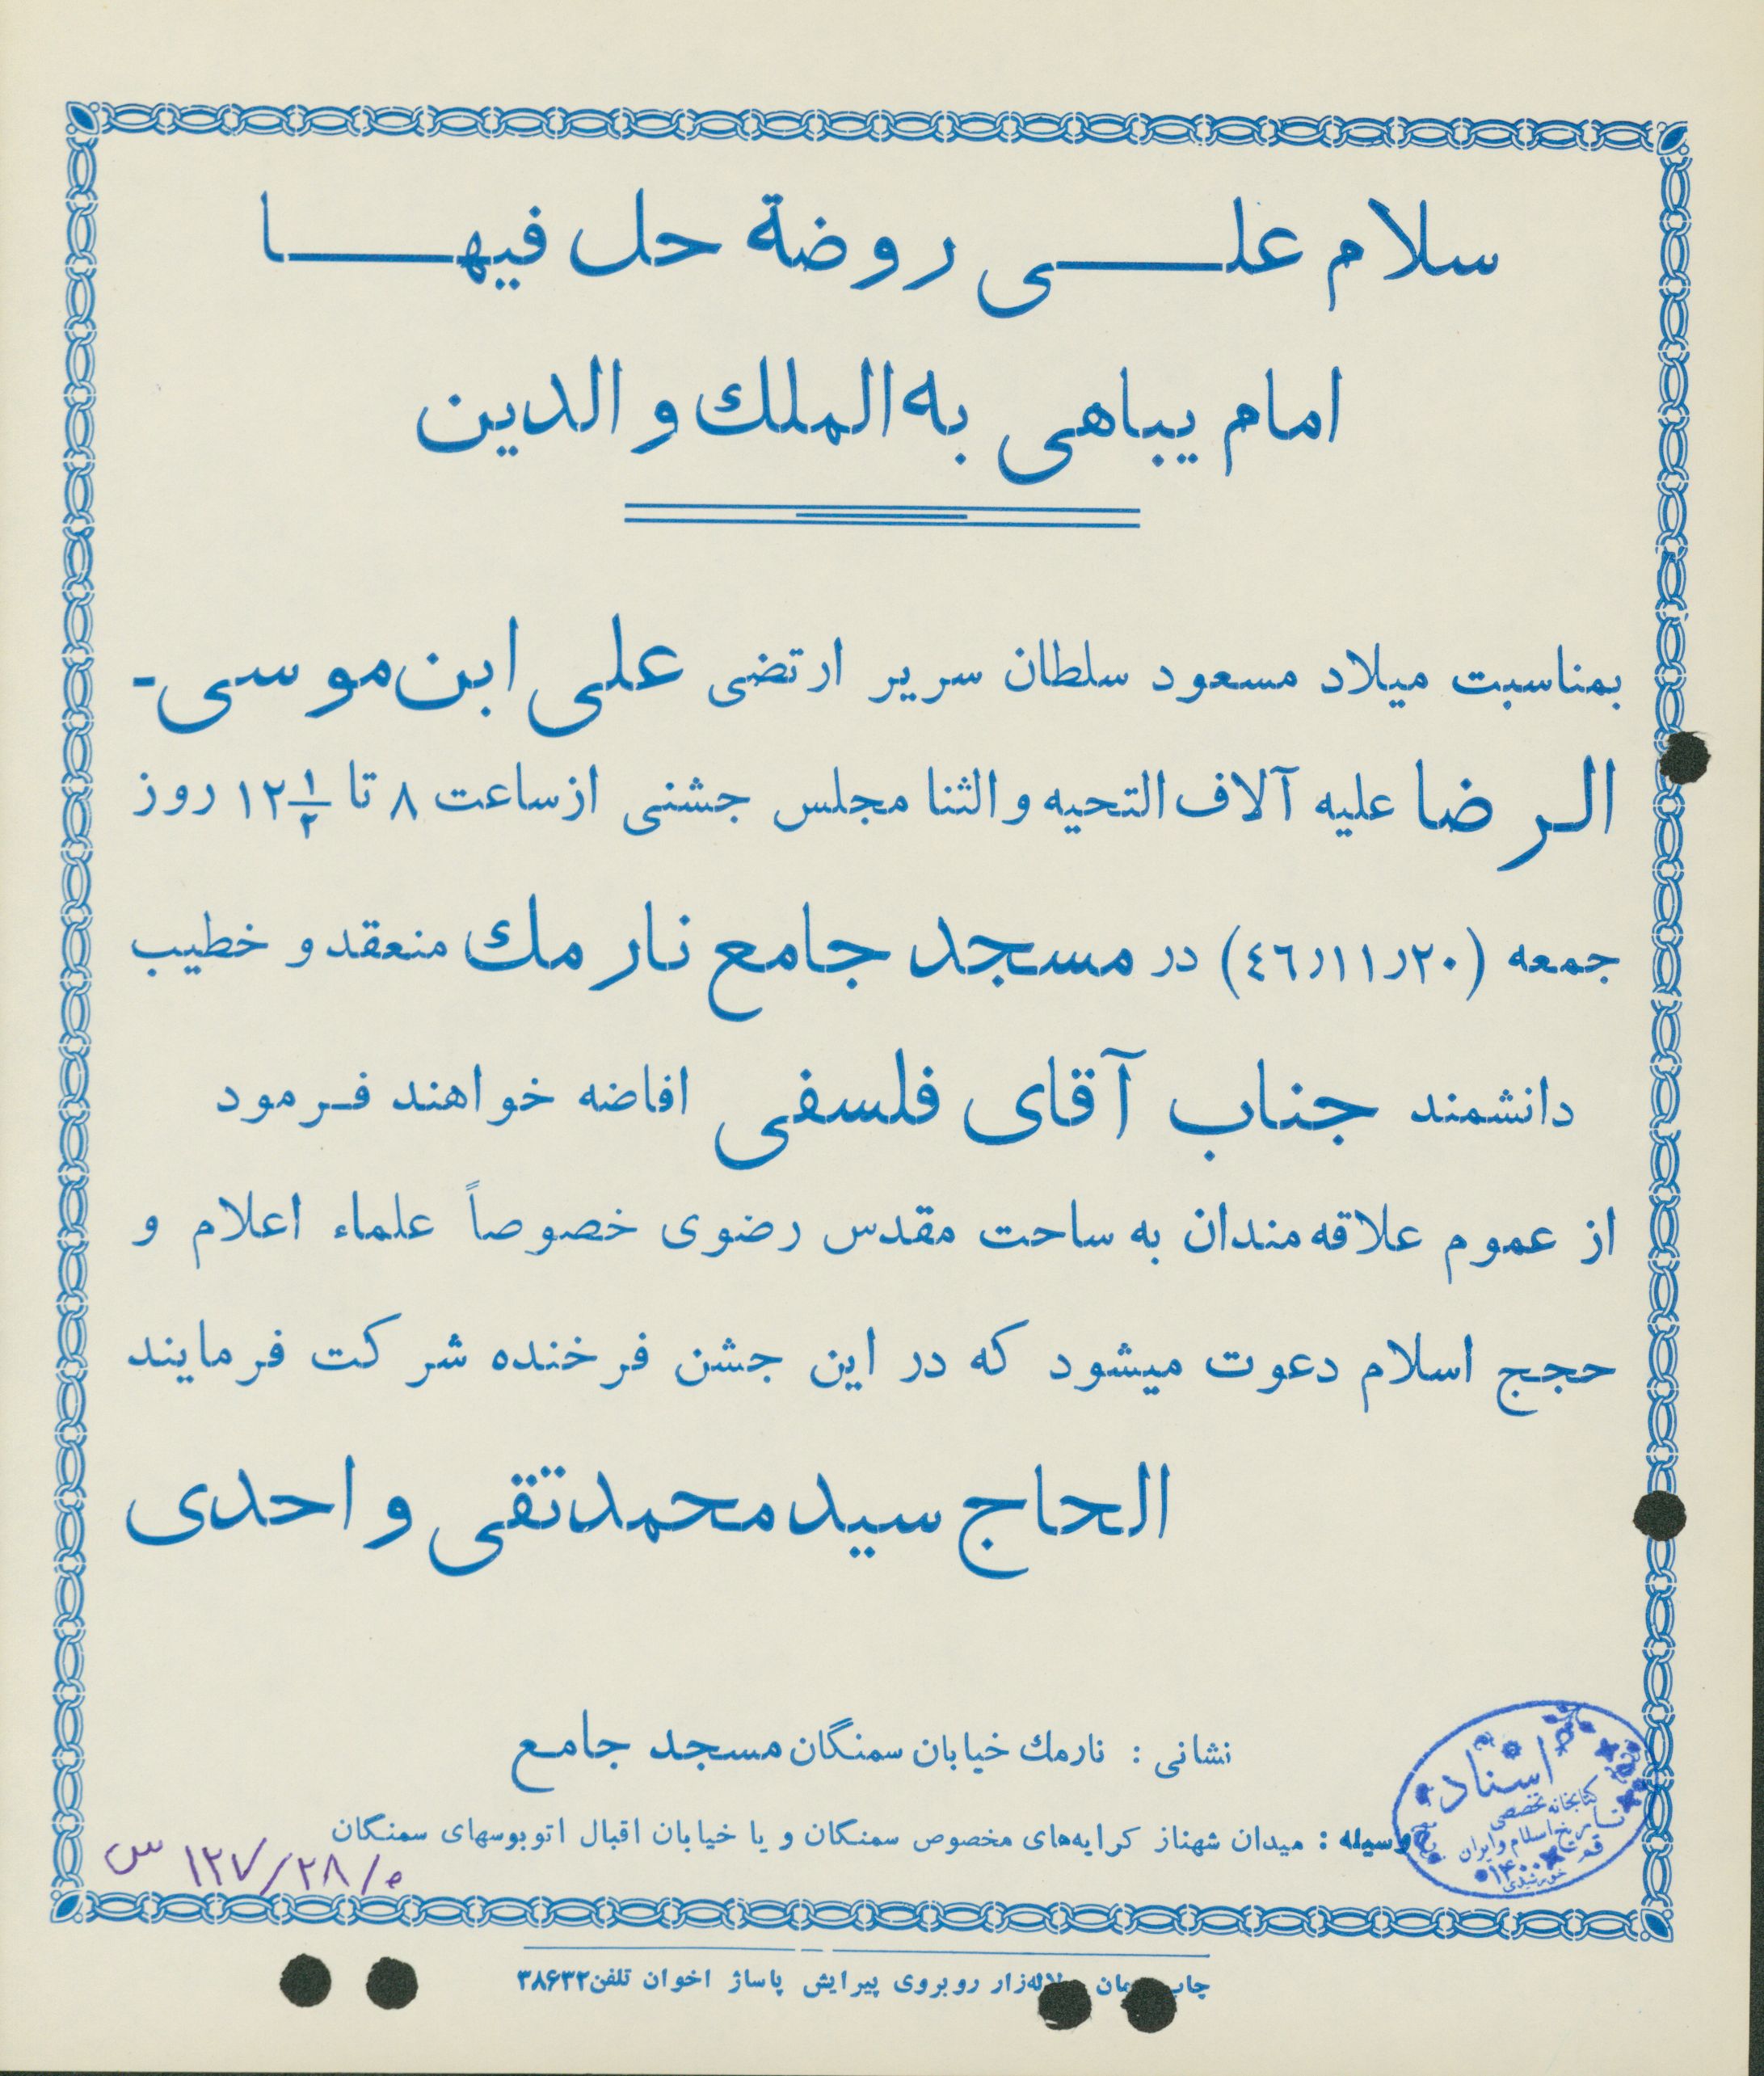 سلام علی روضة حل فیها
امام یباهی به الملك و الدین
بمناسبت میلاد مسعود سلطان سریر ارتضی علی ابن موسی-
الرضا علیه آلاف التحیه و الثنا مجلس جشنی از ساعت ۸ تا ۱۲ ۱/۲ روز
جمعه (۴۶٫۱۱٫۲۰) در مسجد جامع نارمك منعقد و خطیب
دانشمند جناب آقای فلسفی افاضه خواهند فرمود
از عموم علاقه مندان به ساحت مقدس رضوی خصوصاً علماء اعلام و
حجج اسلام دعوت میشود که در این جشن فرخنده شرکت فرمایند
الحاج سید محمد تقی واحدی
نشانی : نارمك خیابان سمنگان مسجد جامع
وسیله : میدان شهناز کرایه‌های مخصوص سمنگان و یا خیابان اقبال اتوبوسهای سمنگان
اسناد
کتابخانه تخصصی
تاریخ اسلام و ایران
قم
۱۴۰۰
خورشیدی
۱۲۷/۲۸/۵ س
چاپ لاله‌زار روبروی پیرایش پاساژ اخوان تلفن ۳۸۶۳۲